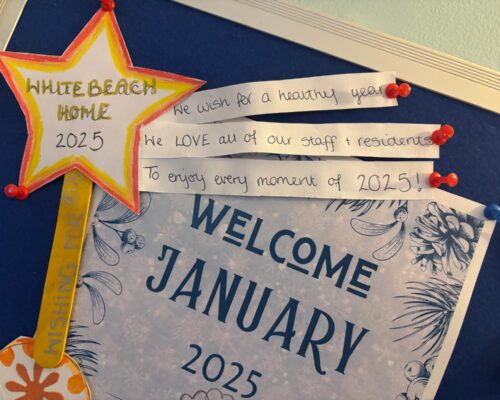 WHITEBEACH
HOME
2025
We wish for a healthy year
We LOVE all of our staff + residents
To enjoy every moment of 2025!
WISHING FOR
WELCOME
JANUARY
2025